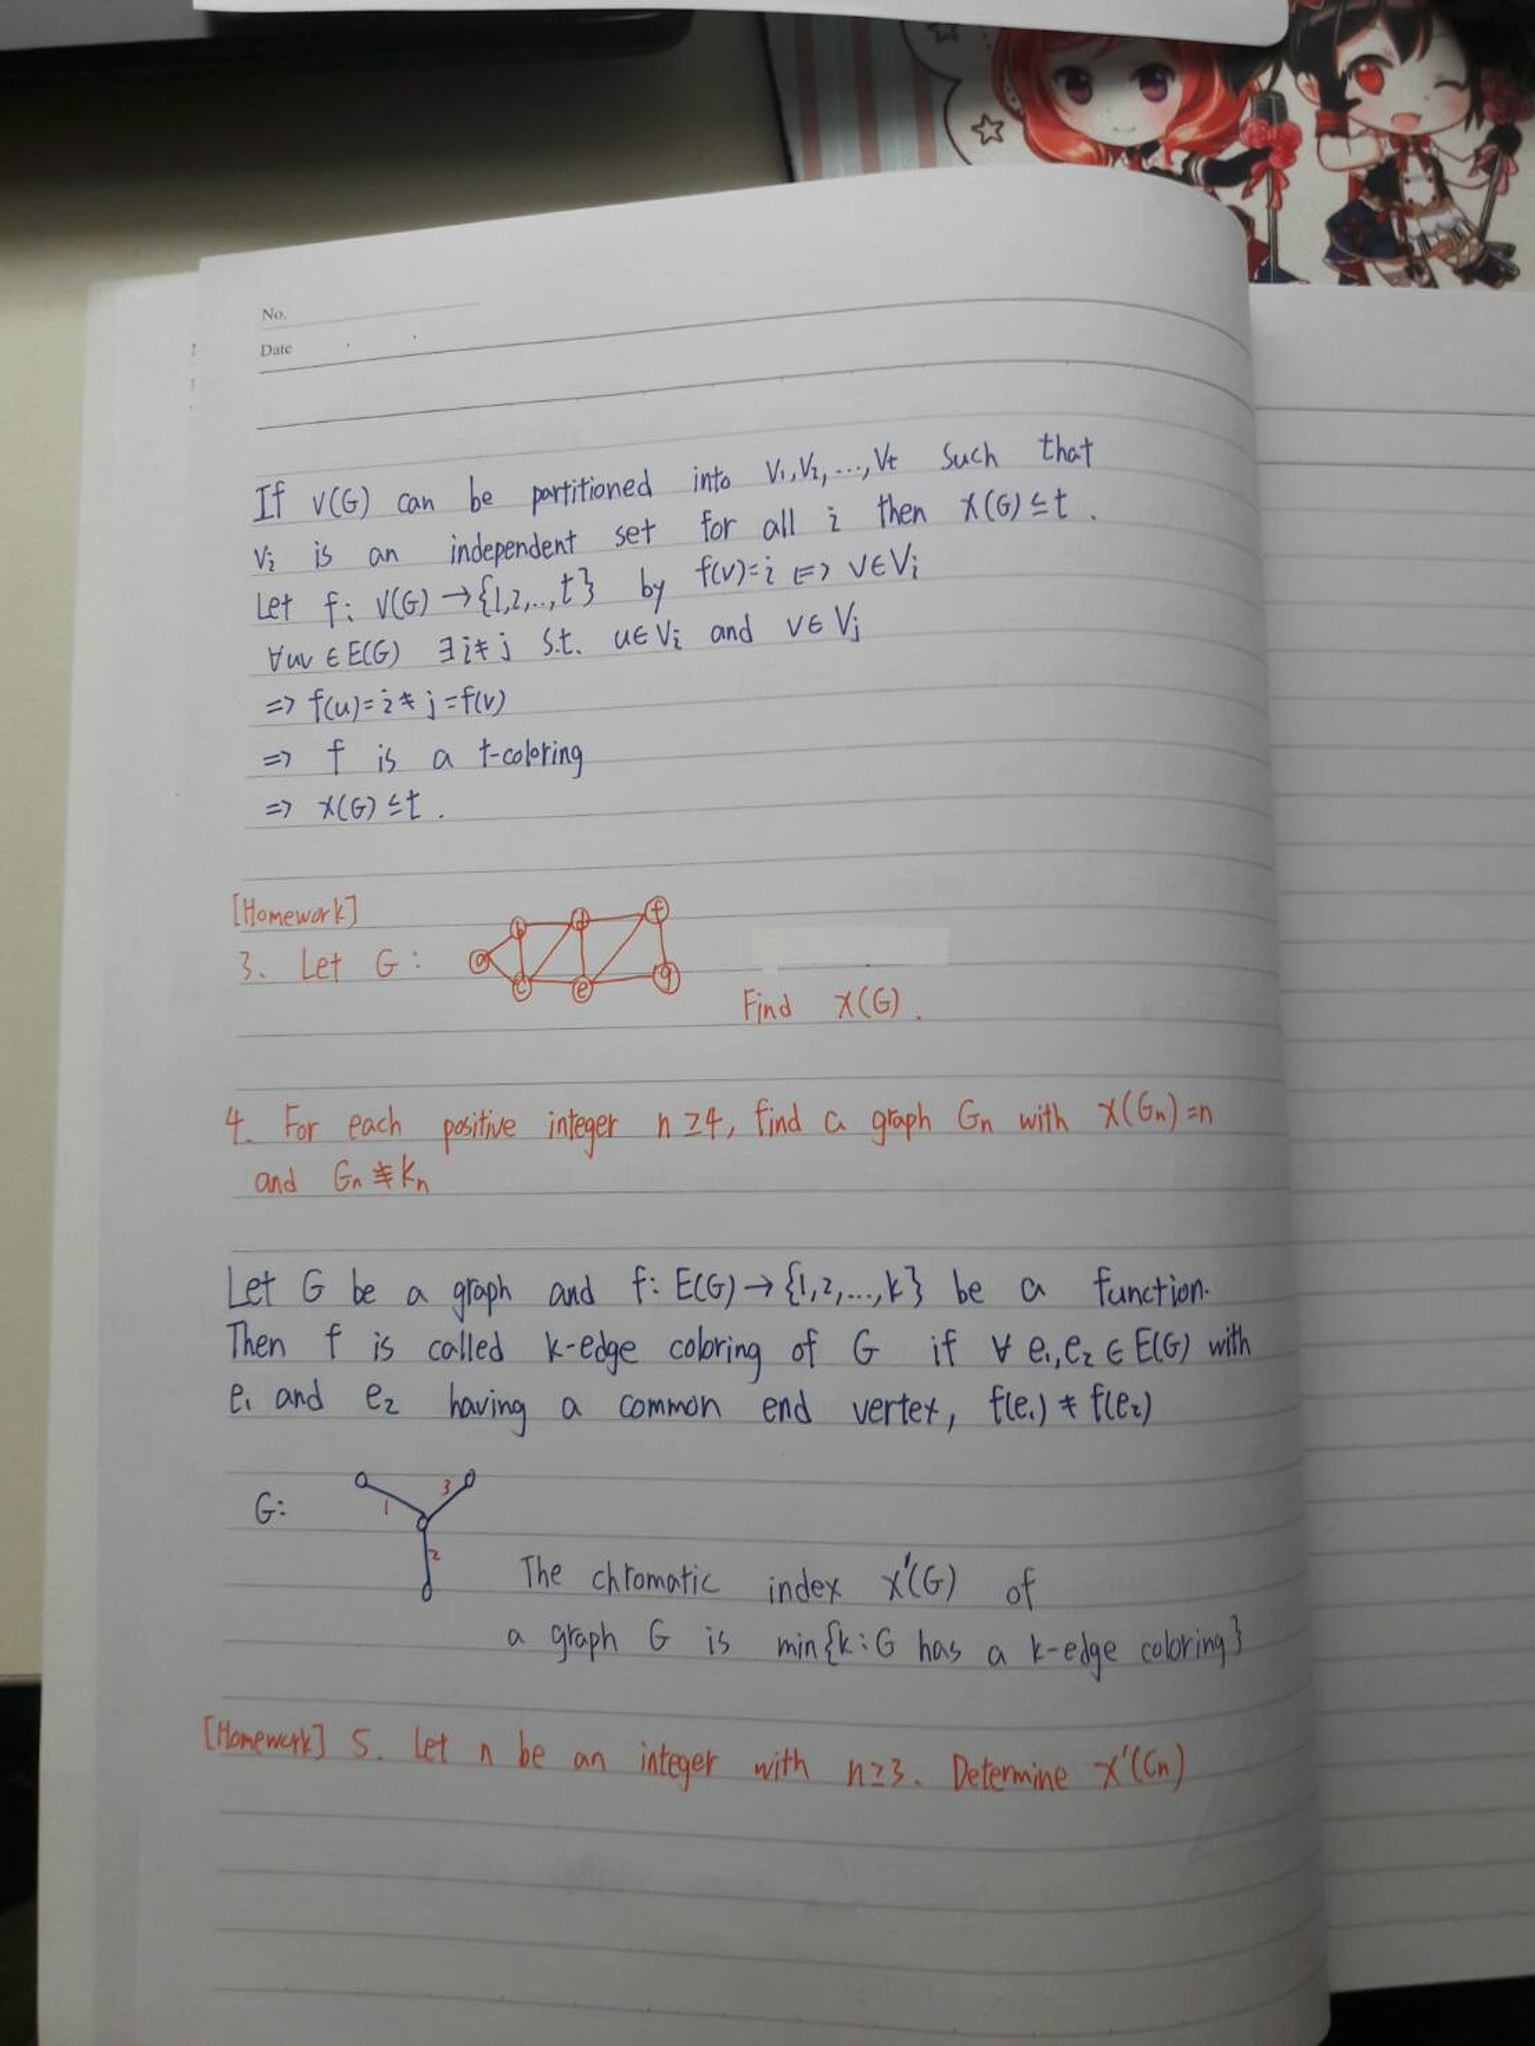 No.
Date
If V(G) can be partitioned into V₁,V₂,...,Vt such that
Vi is an independent set for all i then χ(G)≤t.
Let f: V(G)→{1,2,..,t} by f(v)=i ⇔ v∈Vi
∀uv∈E(G) ∃i≠j s.t. u∈Vi and v∈Vj
⇒ f(u)=i≠j=f(v)
⇒ f is a t-coloring
⇒ χ(G)≤t.
[Homework]
3. Let G: a b c d e f g
Find χ(G).
4. For each positive integer n≥4, find a graph Gn with χ(Gn)=n
and Gn≇Kn
Let G be a graph and f: E(G)→{1,2,...,k} be a function.
Then f is called k-edge coloring of G if ∀ e₁,e₂∈E(G) with
e₁ and e₂ having a common end vertex, f(e₁)≠f(e₂)
G: 1 3 2
The chromatic index χ'(G) of
a graph G is min{k:G has a k-edge coloring}
[Homework] 5. Let n be an integer with n≥3. Determine χ'(Cn)